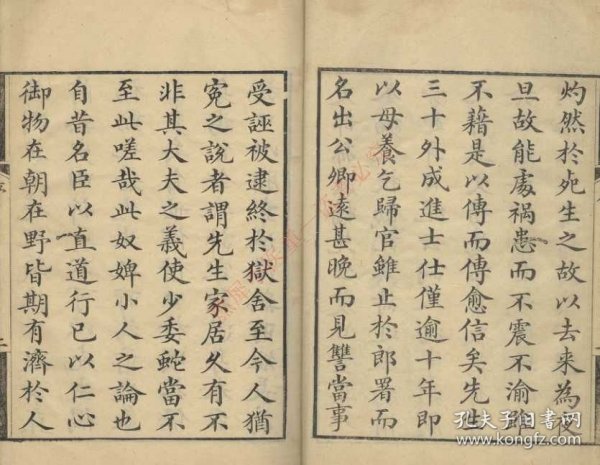 灼然於死生之故以去來為夜
旦故能處禍患而不震不渝雖
不藉是以傳而傳愈信矣先生
三十外成進士仕僅逾十年即
以母養乞歸官雖止於郎署而
名出公卿遠甚晚而見讐當事
受誣被逮終於獄舍至今人猶
寃之說者謂先生家居久有不
非其大夫之義使少委蛇當不
至此嗟哉此奴婢小人之論也
自昔名臣以直道行已以仁心
御物在朝在野皆期有濟於人
序
二
孔夫子旧书网
www.kongfz.com